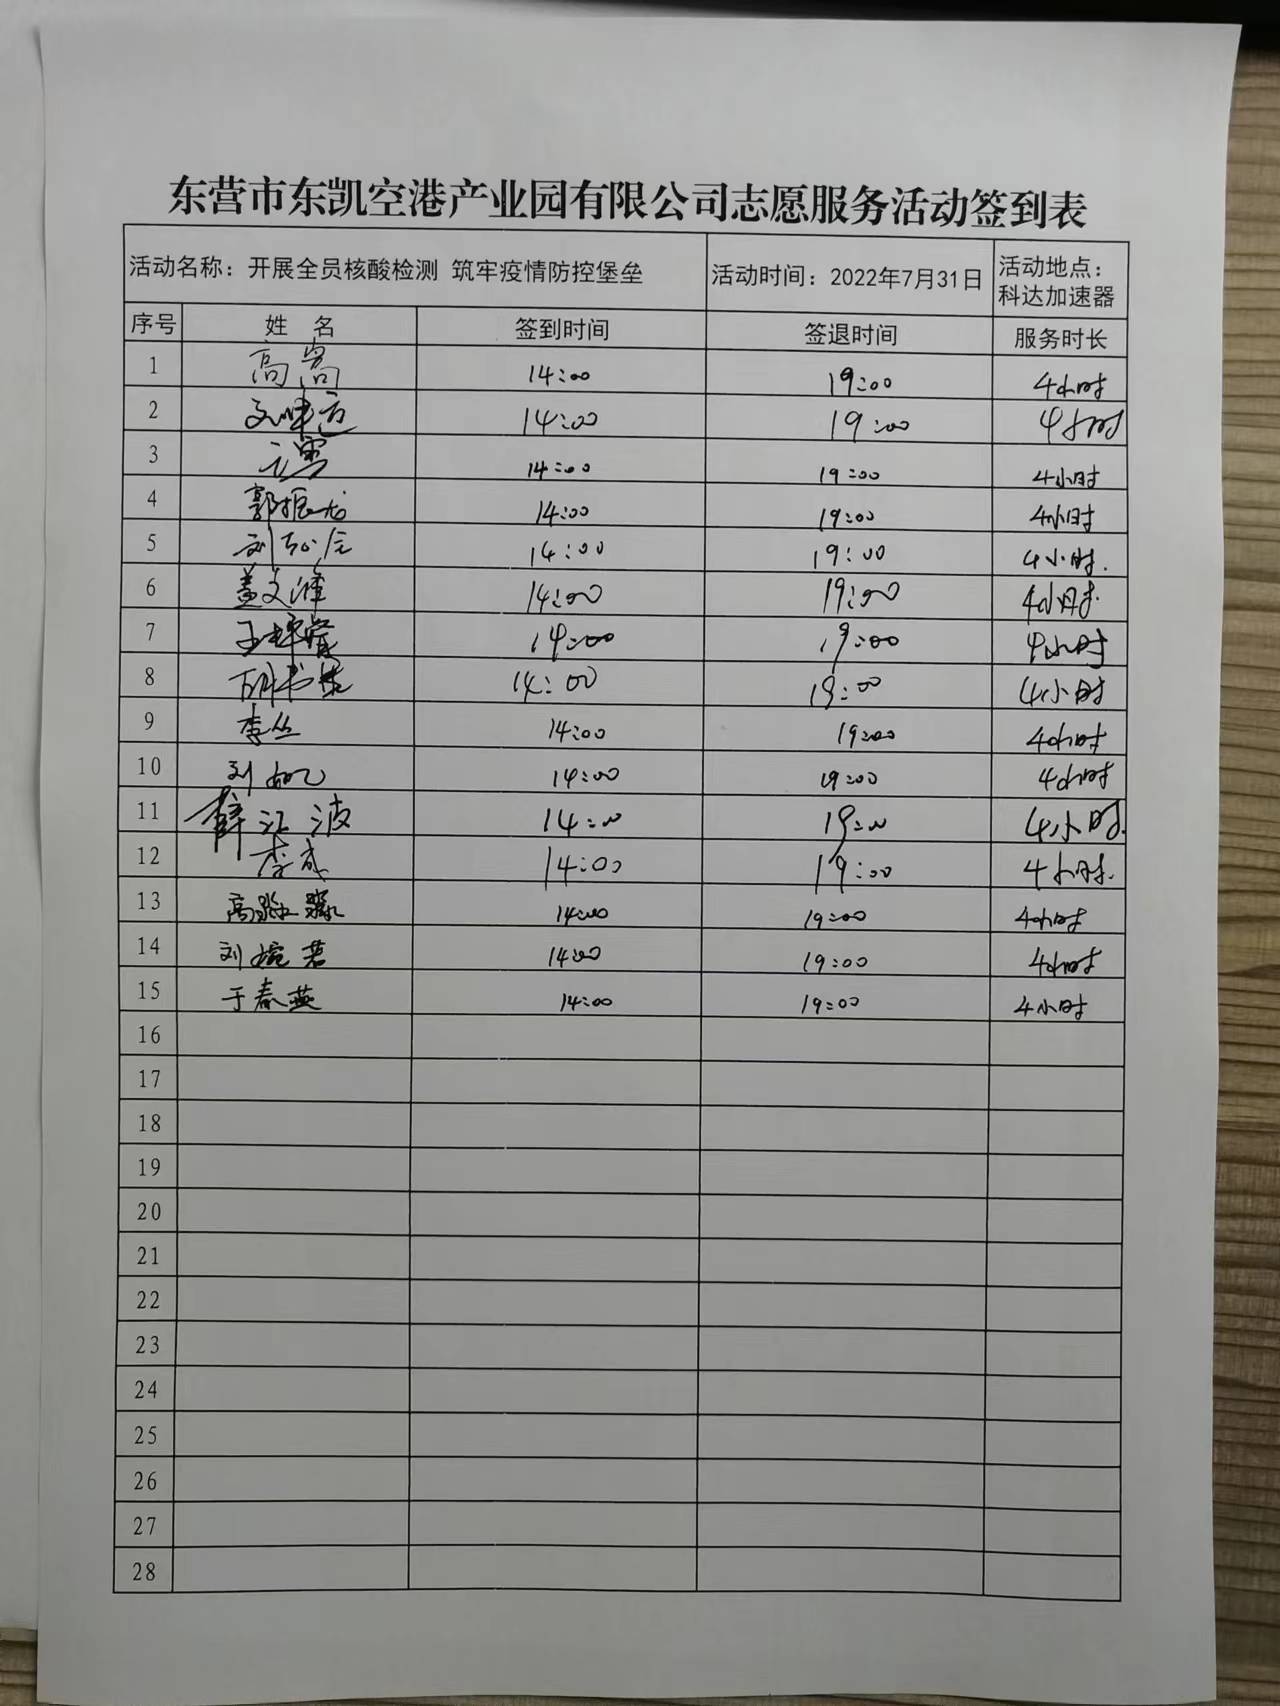 东营市东凯空港产业园有限公司志愿服务活动签到表
活动名称：开展全员核酸检测 筑牢疫情防控堡垒 活动时间：2022年7月31日 活动地点：科达加速器
序号 姓 名 签到时间 签退时间 服务时长
1 高 14:00 19:00 4小时
2 14:00 19:00 4小时
3 14:00 19:00 4小时
4 郭振龙 14:00 19:00 4小时
5 刘 14:00 19:00 4小时.
6 盖文峰 14:00 19:00 4小时.
7 王 14:00 19:00 4小时
8 胡书 14:00 19:00 4小时
9 李丛 14:00 19:00 4小时
10 刘 14:00 19:00 4小时
11 薛江波 14:00 19:00 4小时.
12 李成 14:00 19:00 4小时.
13 高 14:00 19:00 4小时
14 刘婉君 14:00 19:00 4小时
15 于春燕 14:00 19:00 4小时
16
17
18
19
20
21
22
23
24
25
26
27
28